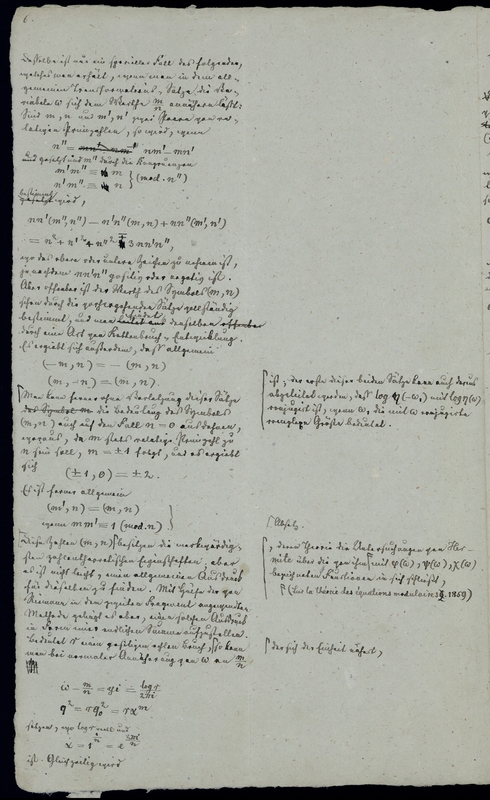 6.
Dasselbe ist nur ein specieller Fall des folgenden,
welches man erhält, wenn man in dem all-
gemeinen Transformations-Satze die Va-
riabele ω sich dem Werthe m/n annähern läßt:
Sind m, n und m', n' zwei Paare von re-
lativen Primzahlen, so wird, wenn
n'' = nm' — mn'
und gesetzt und m'' durch die Congruenzen
m'm'' ≡ m
n'm'' ≡ n } (mod. n'')
bestimmt
wird,
nn'(m'', n'') — n'n''(m, n) + nn''(m', n')
= n² + n'² + n''² ∓ 3nn'n'',
wo das obere oder untere Zeichen zu nehmen ist,
je nachdem nn'n'' positiv oder negativ ist.
Aber offenbar ist der Werth des Symbols (m, n)
schon durch die vorhergehenden Sätze vollständig
bestimmt, und man findet denselben
durch eine Art von Kettenbruch-Entwicklung.
Es ergibt sich außerdem, daß allgemein
(— m, n) = — (m, n)
(m, — n) = (m, n).
Man kann ferner ohne Verletzung dieser Sätze
die Bedeutung des Symbols
(m, n) auch auf den Fall n = 0 ausdehnen,
woraus, da m stets relative Primzahl zu
n sein soll, m = ±1 folgt, und es ergibt
sich
(±1, 0) = ± 2.
Es ist ferner allgemein
(m', n) = (m, n)
wenn mm' ≡ 1 (mod. n) }
Diese Zahlen (m, n) besitzen die merkwürdig-
sten zahlentheoretischen Eigenschaften, aber
es ist nicht leicht, einen allgemeinen Ausdruck
für dieselben zu finden. Mit Hülfe der von
Riemann in dem zweiten Fragment angewandten
Methode gelingt es aber, einen solchen Ausdruck
in Form einer endlichen Summe aufzustellen.
Bedeutet r einen positiven echten Bruch, so kann
man bei normaler Annäherung von ω an m/n
ω — m/n = yi = log r / 2πi
q² = r q₀² = r x^m
setzen, wo log r reell und
ist. Gleichzeitig wird
ist; der erste dieser beiden Sätze kann auch daraus
abgeleitet werden, daß log η(—ω₀) mit log η(ω)
conjugirt ist, wenn ω₀ die mit ω conjugirte
complexe Größe bedeutet.
Absatz.
, deren Theorie die Untersuchungen von Her-
mite über die von ihm mit φ(ω), ψ(ω), χ(ω)
bezeichneten Functionen in sich schließt,
(Sur la théorie des équations modulaires. 1859)
der sich der Einheit nähert,